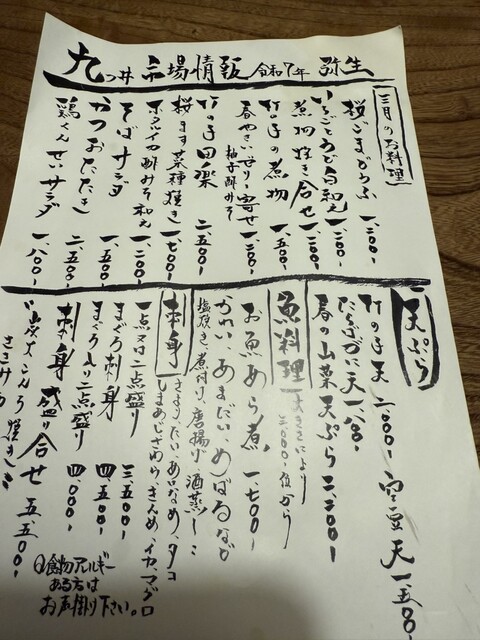 九つ井 市場情報 令和7年 弥生
三月のお料理
桜ごまどうふ 一、二〇〇-
いちごとうど白和え 一、二〇〇-
煮物炊き合せ 一、二〇〇-
竹の子の煮物 一、五〇〇-
春やさいゼリー寄せ 一、二〇〇-
柚子酢みそ
竹の子田楽 二、五〇〇-
桜ます菜種焼き 一、七〇〇-
ホタルイカ酢みそ和え 一、二〇〇-
そばサラダ 一、五〇〇-
かつおたたき 二、五〇〇-
鶏くんせいサラダ 一、八〇〇-
天ぷら
竹の子天 二、〇〇〇- 空豆天 一、五〇〇
たらばがに天 一、八〇〇-
春の山菜天ぷら 二、二〇〇-
魚料理 大きさにより 三、〇〇〇-位から
お魚あら煮 一、七〇〇-
かれい、あまだい、めばるなど
塩焼き、煮付け、唐揚げ、酒蒸しに
刺身 さより、たい、あいなめ、タコ
しまあじ、さわら、きんめ、イカ、マグロ
一点又は二点盛り 三、五〇〇-
まぐろ刺身 四、五〇〇-
まぐろ入り二点盛り 四、〇〇〇-
刺身盛り合せ 五、五〇〇-
こんろ焼き
ささみ
食物アレルギー
ある方は
お声掛け下さい。